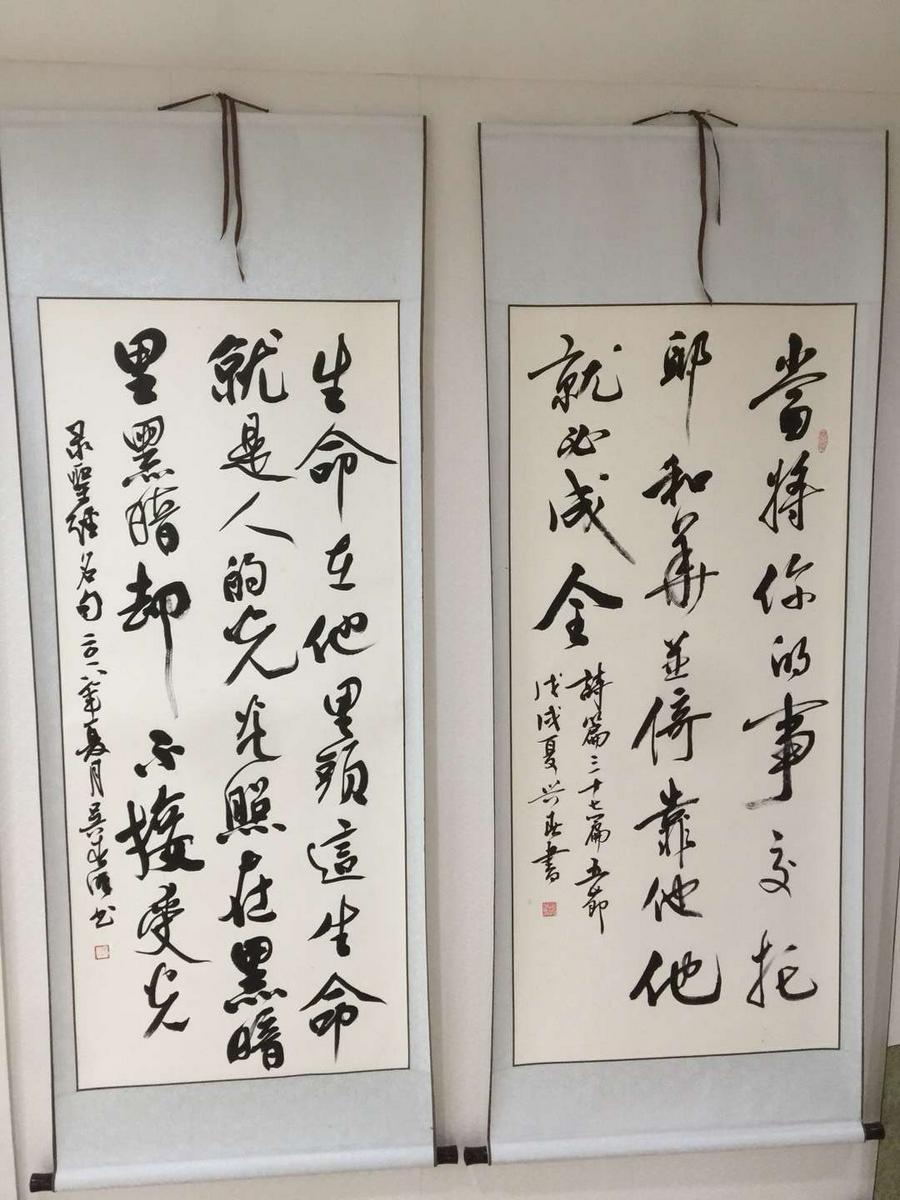 當將你的事交托
耶和華並倚靠他他
就必成全
詩篇三十七篇五節
戊戌夏兴春書
生命在他里頭這生命
就是人的光光照在黑暗
里黑暗却不接受光
录聖經名句二〇一八年夏月吴
书